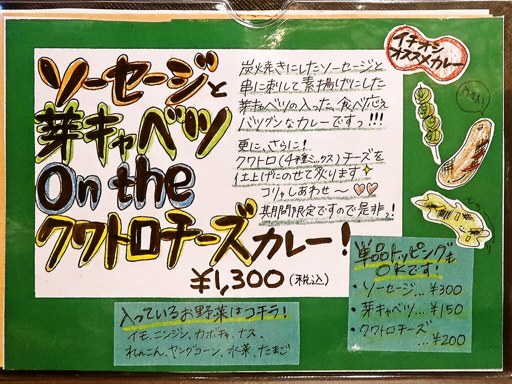 ソーセージと
芽キャベツ
On the
クワトロチーズカレー!
¥1,300(税込)
炭火焼きにしたソーセージと
串に刺して素揚げにした
芽キャベツの入った、食べ応え
バツグンなカレーですっ!!!
更に、さらに!
クワトロ(4種ミックス)チーズを
仕上げにのせて炙ります
コリャしあわせ〜♡♡
期間限定ですので是非っ!
イチオシ
オススメカレー
単品トッピングも
OKです!
・ソーセージ...¥300
・芽キャベツ...¥150
・クワトロチーズ
...¥200
入っているお野菜はコチラ!
イモ、ニンジン、カボチャ、ナス、
れんこん、ヤングコーン、水菜、たまご